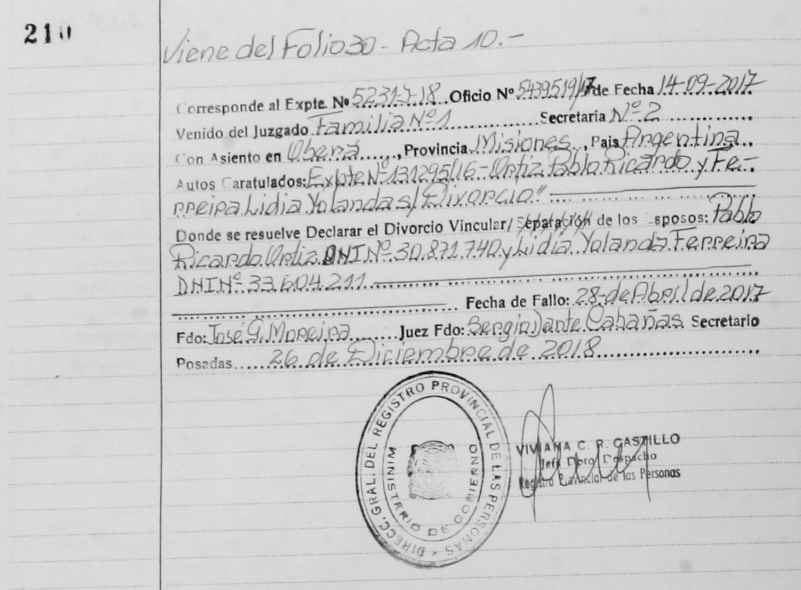 210
Viene del Folio 30 - Acta 10.-
Corresponde al Expte. Nº 5231-J-18 Oficio Nº 5439519/17 de Fecha 14-09-2017
Venido del Juzgado Familia Nº 1 Secretaría Nº 2
Con Asiento en Oberá, Provincia Misiones, Pais Argentina
Autos Caratulados: Expte Nº 131295/16 - Ortiz Pablo Ricardo y Fe-
rreira Lidia Yolanda s/ Divorcio"
Donde se resuelve Declarar el Divorcio Vincular/ Separación de los sposos: Pablo
Ricardo Ortiz DNI Nº 30.871.740 y Lidia Yolanda Ferreira
DNI Nº 33.604.211
Fecha de Fallo: 28 de Abril de 2017
Fdo: José G. Moreira Juez Fdo: Sergio Dante Cabañas Secretario
Posadas 26 de Diciembre de 2018
DIRECC. GRAL. DEL REGISTRO PROVINCIAL DE LAS PERSONAS
MINISTERIO DE GOBIERNO
VIVIANA C. R. CASTILLO
Jefe Dpto. Despacho
Registro Provincial de las Personas